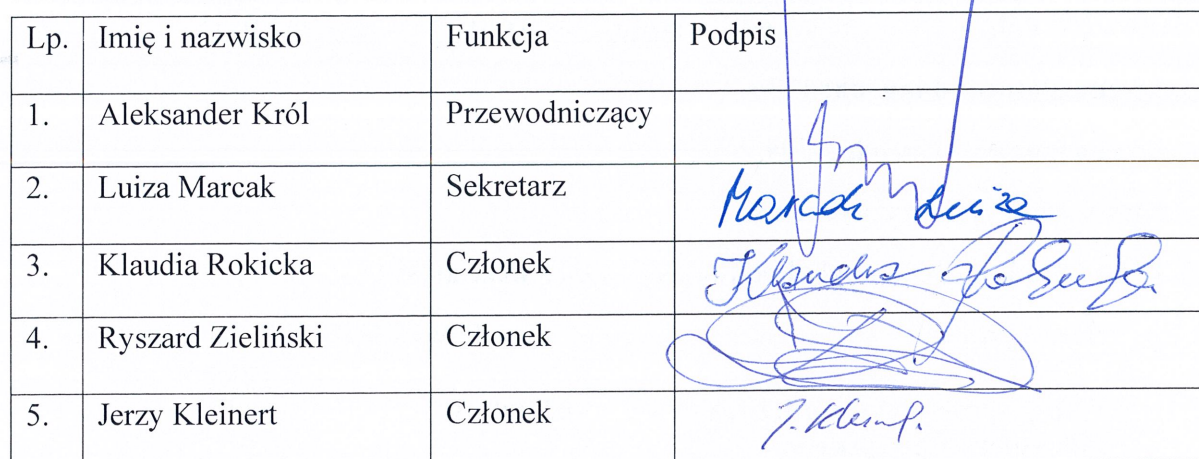 Lp. Imię i nazwisko Funkcja Podpis
1. Aleksander Król Przewodniczący
2. Luiza Marcak Sekretarz Marcak Luiza
3. Klaudia Rokicka Członek Klaudia Rokicka
4. Ryszard Zieliński Członek
5. Jerzy Kleinert Członek